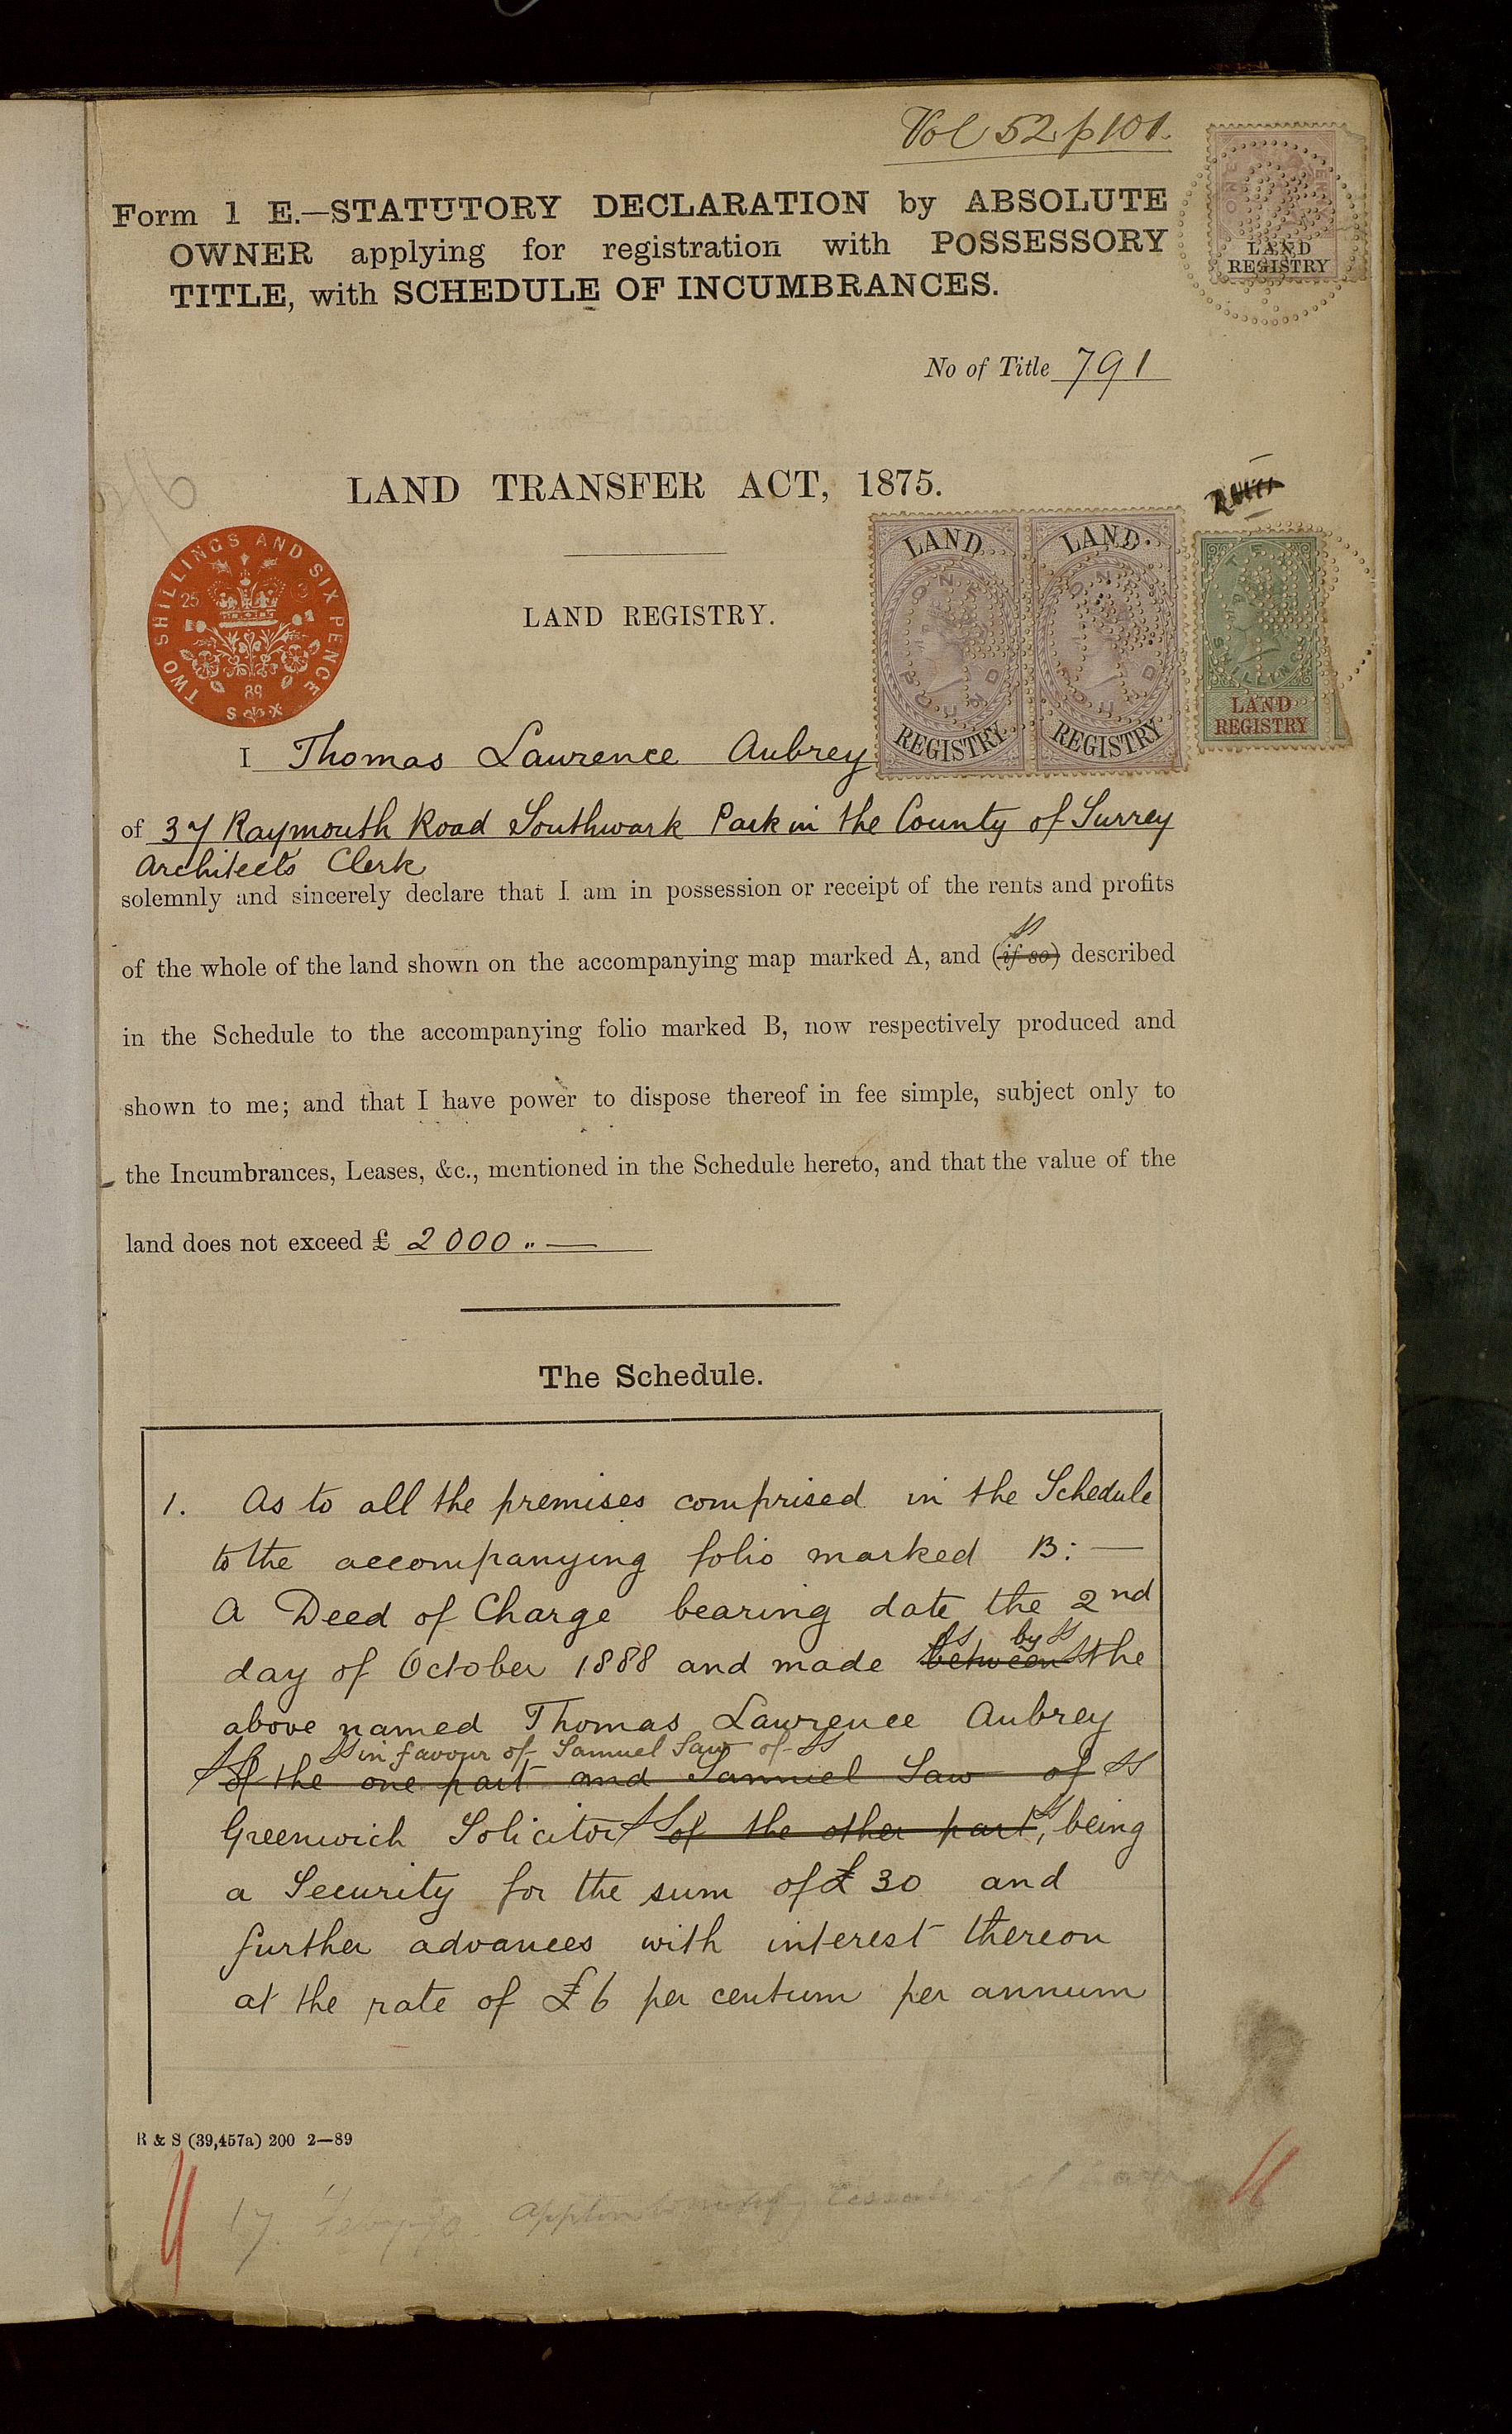 Vol 52 p 101.
Form 1 E.—STATUTORY DECLARATION by ABSOLUTE
OWNER applying for registration with POSSESSORY
TITLE, with SCHEDULE OF INCUMBRANCES.
LAND
REGISTRY
No of Title 791
LAND TRANSFER ACT, 1875.
TWO SHILLINGS AND SIX PENCE
25
89
LAND REGISTRY.
LAND
REGISTRY
LAND
REGISTRY
LAND
REGISTRY
I Thomas Lawrence Aubrey
of 37 Raymouth Road Southwark Park in the County of Surrey
Architects Clerk
solemnly and sincerely declare that I am in possession or receipt of the rents and profits
of the whole of the land shown on the accompanying map marked A, and (if so) described
in the Schedule to the accompanying folio marked B, now respectively produced and
shown to me; and that I have power to dispose thereof in fee simple, subject only to
the Incumbrances, Leases, &c., mentioned in the Schedule hereto, and that the value of the
land does not exceed £ 2000 „ —
The Schedule.
1. As to all the premises comprised in the Schedule
to the accompanying folio marked B: —
A Deed of Charge bearing date the 2nd
by
day of October 1888 and made between the
above named Thomas Lawrence Aubrey
in favour of Samuel Saw of
of the one part and Samuel Saw of
Greenwich Solicitor of the other part, being
a Security for the sum of £30 and
further advances with interest thereon
at the rate of £6 per centum per annum
R & S (39,457a) 200 2—89
17